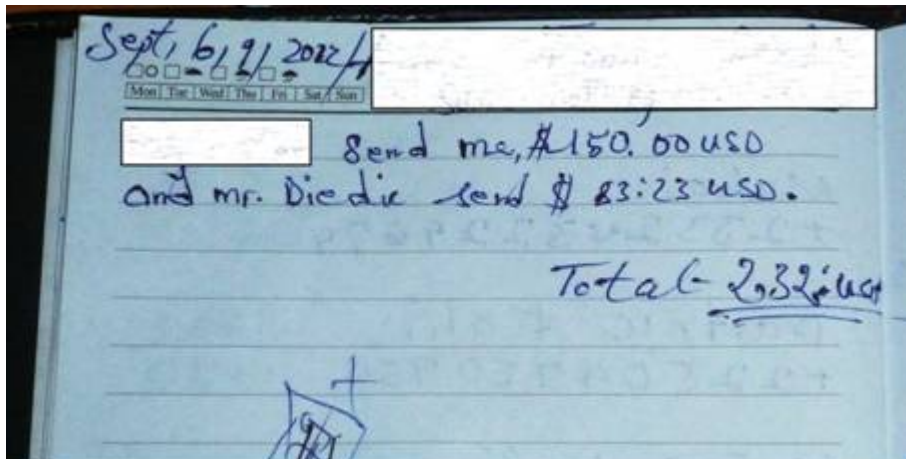 Sept, 6, 9, 2022
Mon Tue Wed Thu Fri Sat Sun
Send me, $150.00 USD
and mr. Diedie send $ 83:23 USD.
Total- 2,32